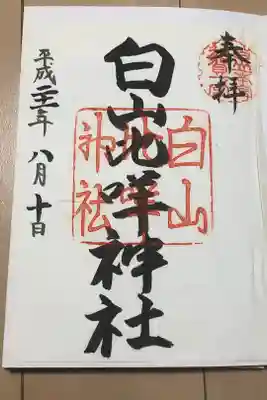 奉拝
白山比咩神社
白山
神社
平成 年 八月十日